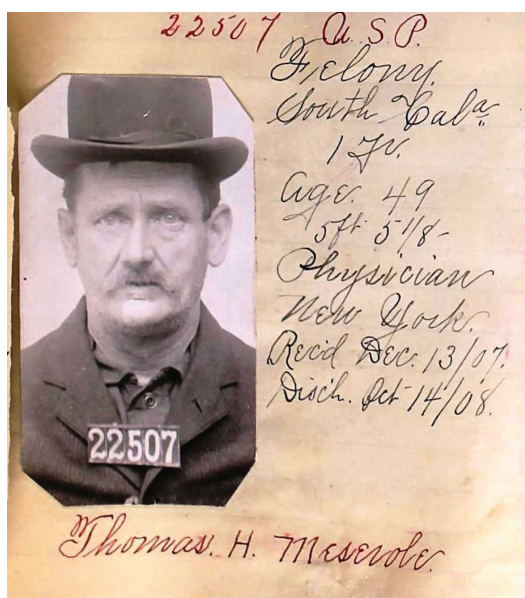 22507 U.S.P.
Felony.
South Cala.
1 Yr.
Age. 49
5ft 5 1/8-
Physician
New York.
Rec'd Dec. 13/07.
Disch. Oct 14/08.
22507
Thomas. H. Meserole.